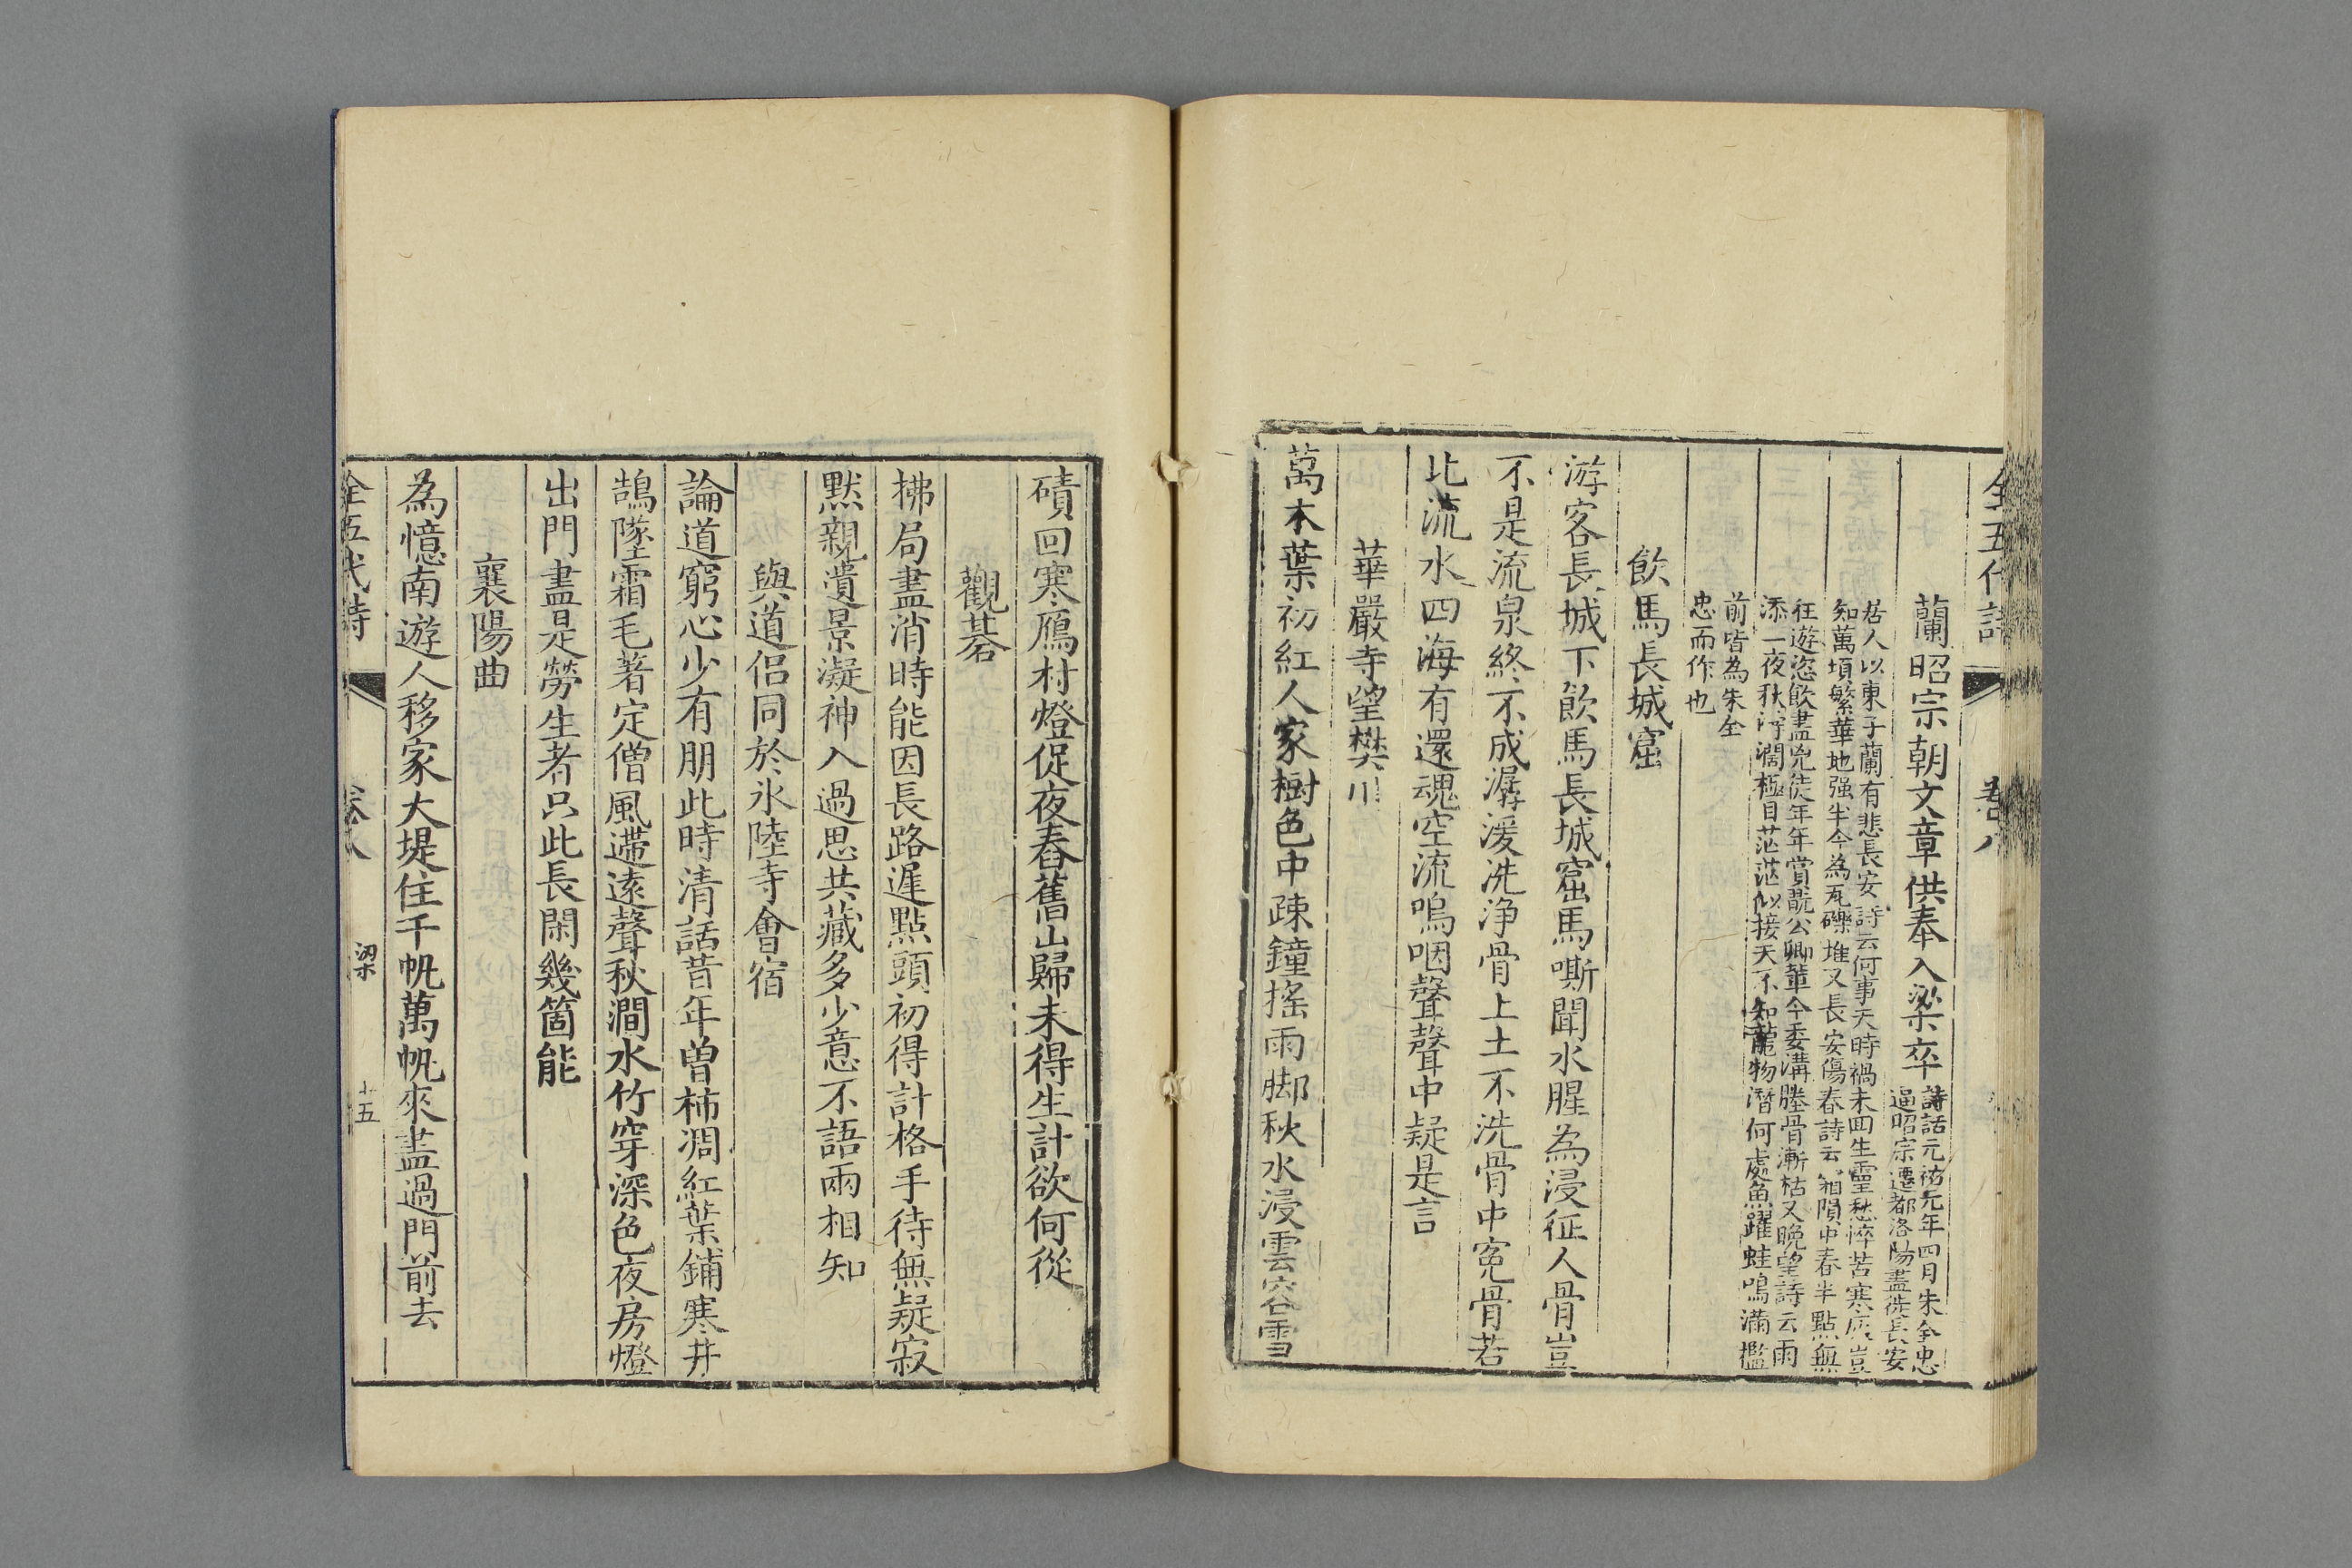 全五代詩
卷八
蘭昭宗朝文章供奉入梁卒
詩話元祐元年四月朱全忠
逼昭宗遷都洛陽盡徙長安
居人以東子蘭有悲長安詩云何事天時禍未回生靈愁悴苦寒灰豈
知萬頃繁華地强半今為瓦礫堆又長安傷春詩云霜隕中春半點無
狂遊恣飲盡兇徒年年賞翫公卿輩今委溝塍骨漸枯又晚望詩云雨
添一夜秋濤濶極目茫茫似接天不知龍物潛何處魚躍蛙鳴滿檻
前皆為朱全
忠而作也
飲馬長城窟
游客長城下飲馬長城窟馬嘶聞水腥為浸征人骨豈
不是流泉終不成潺湲洗淨骨上土不洗骨中冤骨若
比流水四海有還魂空流嗚咽聲聲中疑是言
華嚴寺望樊川
萬木葉初紅人家樹色中疎鐘搖雨脚秋水浸雲容雪
磧回寒鴈村燈促夜舂舊山歸未得生計欲何從
觀碁
拂局盡消時能因長路遲點頭初得計格手待無疑寂
默親遺景凝神入過思共藏多少意不語兩相知
與道侶同於水陸寺會宿
論道窮心少有朋此時清話昔年曾柿凋紅葉鋪寒井
鵠墜霜毛著定僧風遞遠聲秋澗水竹穿深色夜房燈
出門盡是勞生者只此長閑幾箇能
襄陽曲
為憶南遊人移家大堤住千帆萬帆來盡過門前去
全五代詩
卷八
梁
十五